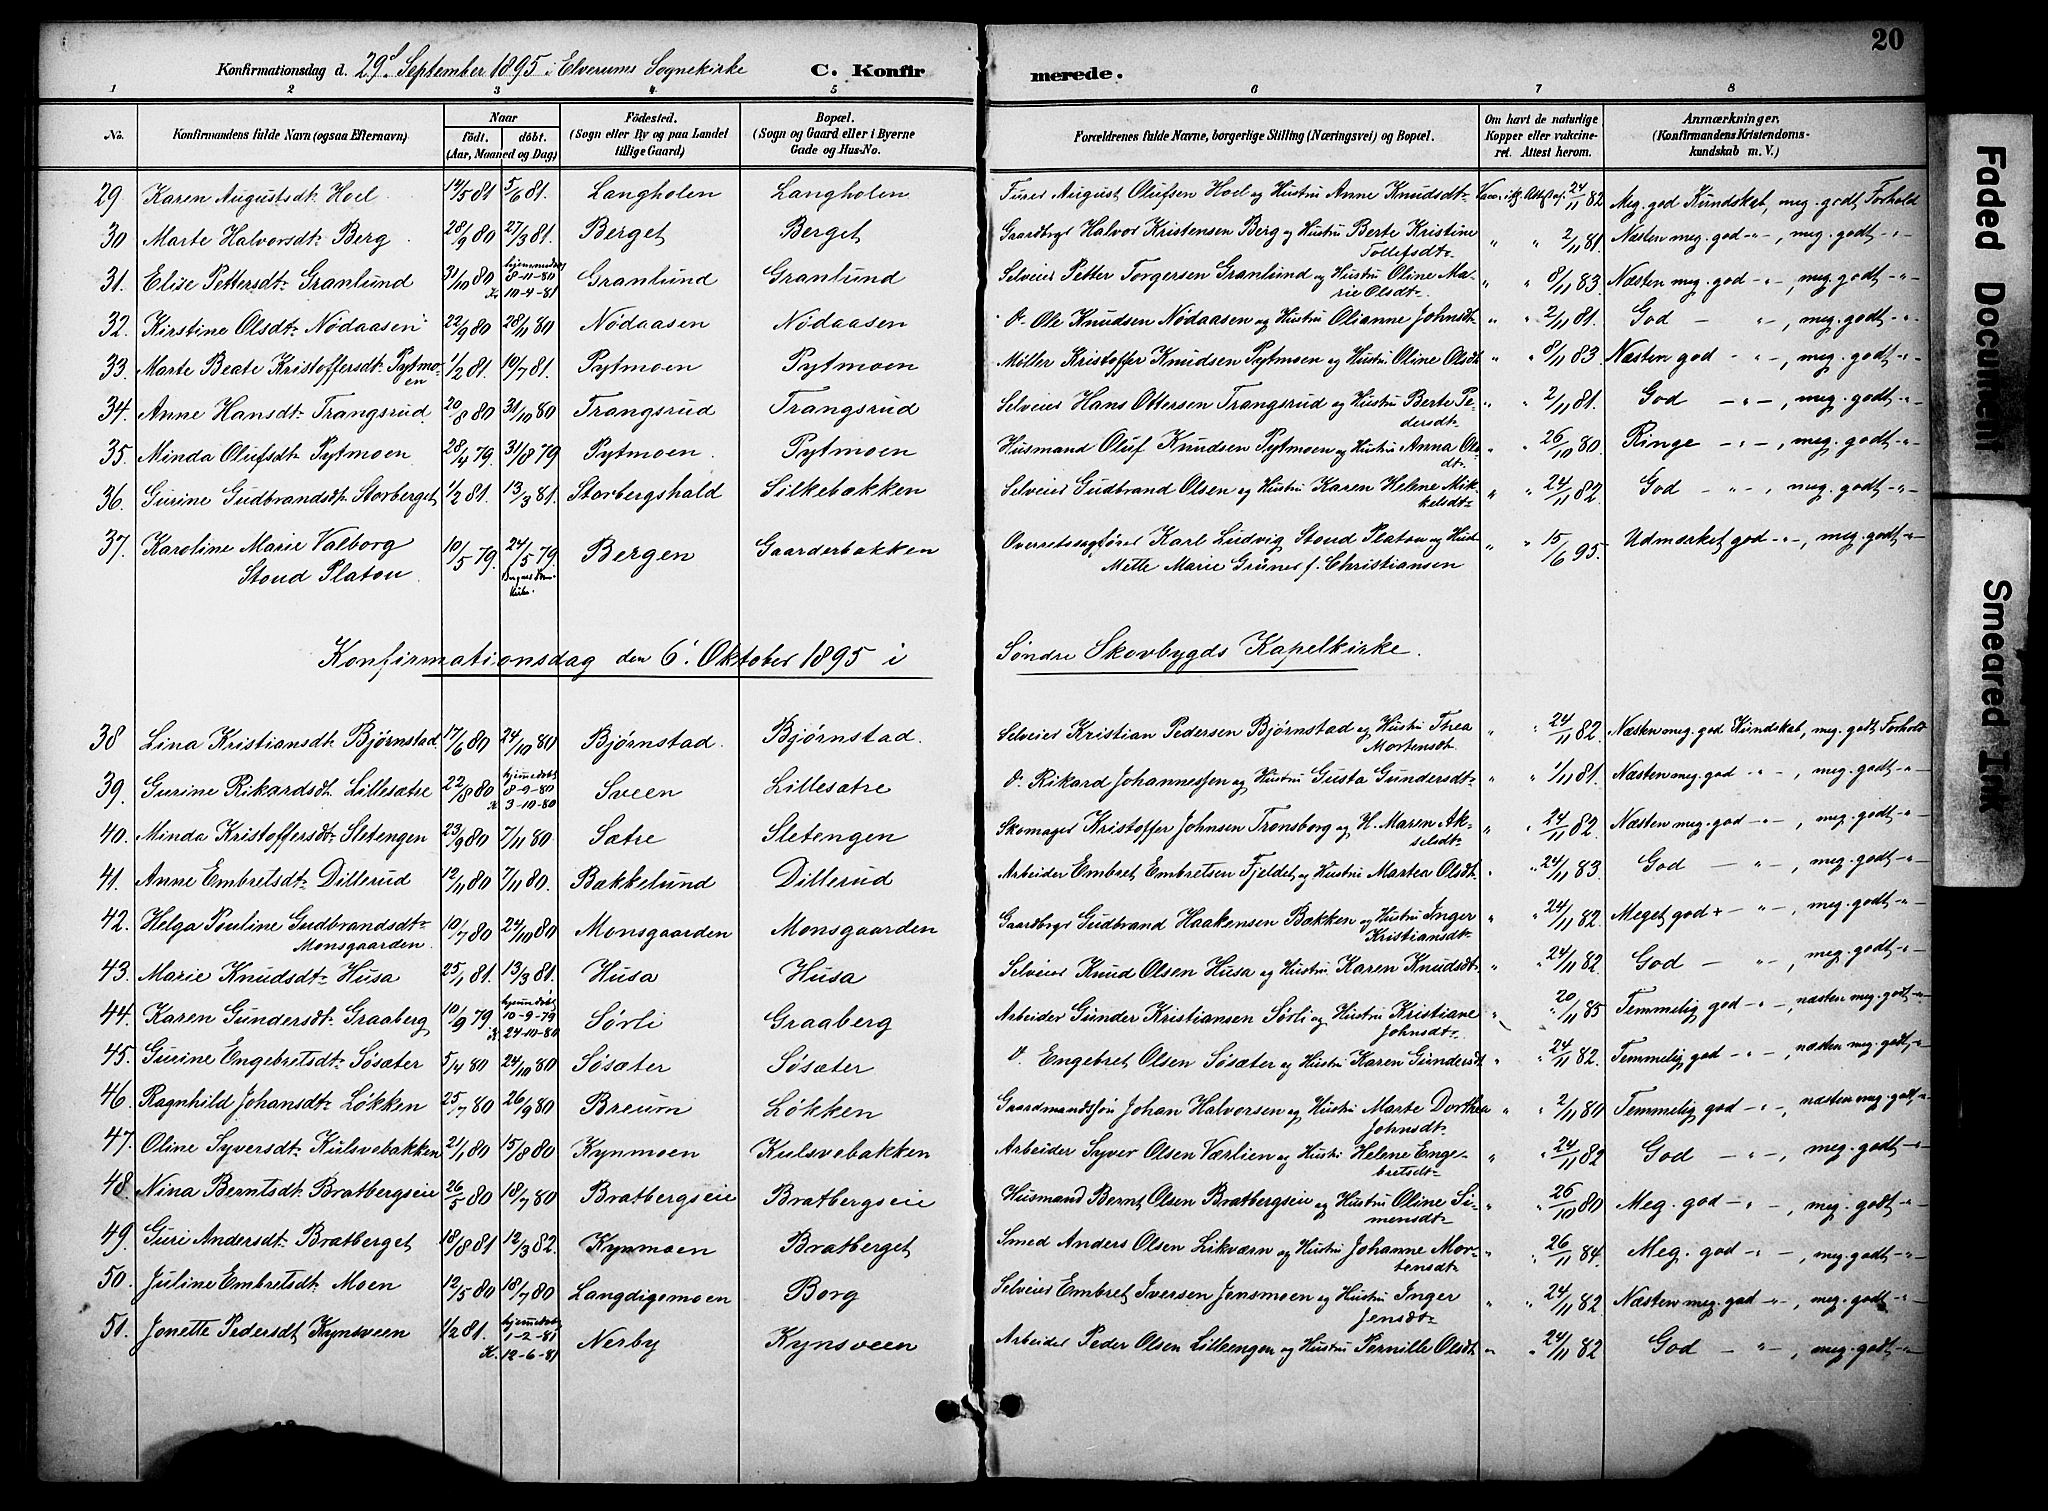 20
Konfirmationsdag d. 29de September 1895 i Elverums Sognekirke C. Konfirmerede.
1 2 3 4 5 6 7 8
No. Konfirmandens fulde Navn (ogsaa Efternavn) Naar født. døbt. (Aar, Maaned og Dag) Fødested. (Sogn eller By og paa Landet tillige Gaard) Bopæl. (Sogn og Gaard eller i Byerne Gade og Hus-No. Forældrenes fulde Navne, borgerlige Stilling (Næringsvei) og Bopæl. Om havt de naturlige Kopper eller vakcineret. Attest herom. Anmærkninger, (Konfirmandens Kristendomskundskab m. V.)
29 Karen Augustsdt. Hoel 14/5 81 5/6 81. Langholen Langholen Furer August Olufsen Hoel og Hustru Anne Knudsdt. 24/11 82 Meg. god Kundskab, meg. godt Forhold
30 Marte Halvorsdt. Berg 28/9 80 27/3 81. Berget Berget Gaardbrgr Halvor Kristensen Berg og Hustru Berte Kristine Tollefsdt. " " 2/11 81. Næsten meg. god -"-, meg. godt -"-
31. Elise Pettersdt. Granlund 31/10 80 hjemmedøbt 8-11-80 K. 10-4-81 Granlund Granlund Selveier Petter Torgersen Granlund og Hustru Oline Marie Olsdt. " " 8/11 83. Næsten meg. god -"-, meg. godt -"-
32. Kirstine Olsdt. Nödaasen 22/9 80 28/11 80 Nödaasen Nödaasen d. Ole Knudsen Nödaasen og Hustru Olianne Johnsdt. " " 2/11 81. God -"-, meg. godt -"-
33. Marte Beate Kristoffersdt. Pytmoen 1/2 81. 10/7 81. Pytmoen Pytmoen Möller Kristoffer Knudsen Pytmoen og Hustru Oline Olsdt. " " 8/11 83 Næsten god -"-, meg. godt -"-
34. Anne Hansdt. Trangsrud 20/8 80 31/10 80 Trangsrud Trangsrud Selveier Hans Ottersen Trangsrud og Hustru Berte Pedersdt. " " 2/11 81. God -"-, meg. godt -"-
35. Minda Olufsdt. Pytmoen 28/4 79. 31/8 79 Pytmoen Pytmoen Husmand Oluf Knudsen Pytmoen og Hustru Anna Olsdt. " " 26/10 80 Ringe -"-, meg. godt -"-
36. Gurine Gudbrandsdt. Storberget 1/2 81. 13/3 81. Storbergshald Silkebækken Selveier Gudbrand Olsen og Hustru Karen Helene Mikkelsdt. " " 24/11 82. God -"-, meg. godt -"-
37. Karoline Marie Valborg Stoud Platou 10/5 79. 24/5 79 Bergen Gaarderbakken Overretssagfører Karl Ludvig Stoud Platou og Hust. Mette Marie Grüner f. Christiansen " " 15/6 95. Udmærket god -"-, meg. godt -"-
Konfirmationsdag den 6. Oktober 1895 i Søndre Skovbygds Kapelkirke.
38 Lina Kristiansdt. Bjørnstad 17/6 80 24/10 80 Bjørnstad. Bjørnstad. Selveier Kristian Pedersen Bjørnstad og Hustru Thea Mortensdt. " " 24/11 82. Næsten meg. god Kundskab, meg. godt Forhold
39. Gurine Rikardsdt. Lillesætre 22/8 80 hjemmedøbt 8-9-80 K. 3-10-80 Sveen Lillesætre d. Rikard Johannessen og Hustru Gusta Gundersdt. " " 1/11 81. Næsten meg. god -"-, meg. godt -"-
40. Minda Kristoffersdt. Sletengen 23/9 80 7/11 80 Sætre Sletengen Skomager Kristoffer Johnsen Tronsborg og H. Maren Akselsdt. " " 24/11 82. Næsten meg. god -"-, meg. godt -"-
41. Anne Embretsdt. Dillerud 12/11 80 7/11 80. Bækkelund Dillerud Arbeider Embret Embretsen Fjeldet og Hustru Martea Olsdt. " " 24/11 83. God -"-, meg. godt -"-
42. Helga Pouline Gudbrandsdt. Monsgaarden 10/7 80 24/10 80 Monsgaarden Monsgaarden Gaardbrgr Gudbrand Haakensen Bakken og Hustru Inger Kristiansdt. " " 24/11 82. Meget god + -"-, meg. godt -"-
43. Marie Knudsdt. Husa 25/1 81. 13/3 81. Husa Husa Selveier Knud Olsen Husa og Hustru Karen Knudsdt. " " 24/11 82. God -"-, meg. godt -"-
44. Karen Gundersdt. Graaberg 10/9 79 hjemmedøbt 10-9-79 K. 24-10-80 Sørli Graaberg Arbeider Gunder Kristiansen Sørli og Hustru Kristiane Johnsdt. " " 20/11 85 Temmelig god -"-, næsten meg. godt -"-
45. Gurine Engebretsdt. Søsæter 5/4 80 24/10 80 Søsæter Søsæter d. Engebret Olsen Søsæter og Hustru Karen Gundersdt. " " 24/11 82. Temmelig god -"-, næsten meg. godt -"-
46. Ragnhild Johansdt. Løkken 25/7 80 26/9 80 Breum Løkken Gaardmandssøn Johan Halvorsen og Hustru Marte Dorthea Johnsdt. " " 2/11 80 Temmelig god -"-, næsten meg. godt -"-
47. Oline Syversdt. Kulsvebakken 21/1 80 15/8 80 Kynmoen Kulsvebakken Arbeider Syver Olsen Værlien og Hustru Helene Engebretsdt. " " 24/11 82 God -"-, meg. godt -"-
48. Nina Berntsdt. Bratbergseie 26/5 80 18/7 80 Bratbergseie Bratbergseie Husmand Bernt Olsen Bratbergseie og Hustru Oline Simensdt. " " 26/10 80 Meg. god -"-, meg. godt -"-
49. Guri Andersdt. Bratberget 18/8 81 12/3 82. Kynmoen Bratberget Smed Anders Olsen Likværn og Hustru Johanne Mortensdt. " " 26/11 84. Meg. god -"-, meg. godt -"-
50. Juline Embretsdt. Moen 12/5 80 18/7 80 Langdigemoen Borg Selveier Embret Iversen Jensmoen og Hustru Inger Jensdt. " " 24/11 82 Næsten meg. god -"-, meg. godt -"-
51. Jonette Pedersdt. Kynsveen 1/2 81. hjemmedøbt 1-2-81 K. 12-6-81 Nerby Kynsveen Arbeider Peder Olsen Lilleengen og Hustru Pernille Olsdt. " " 24/11 82 God -"-, meg. godt -"-
Faded Document
Smeared Ink